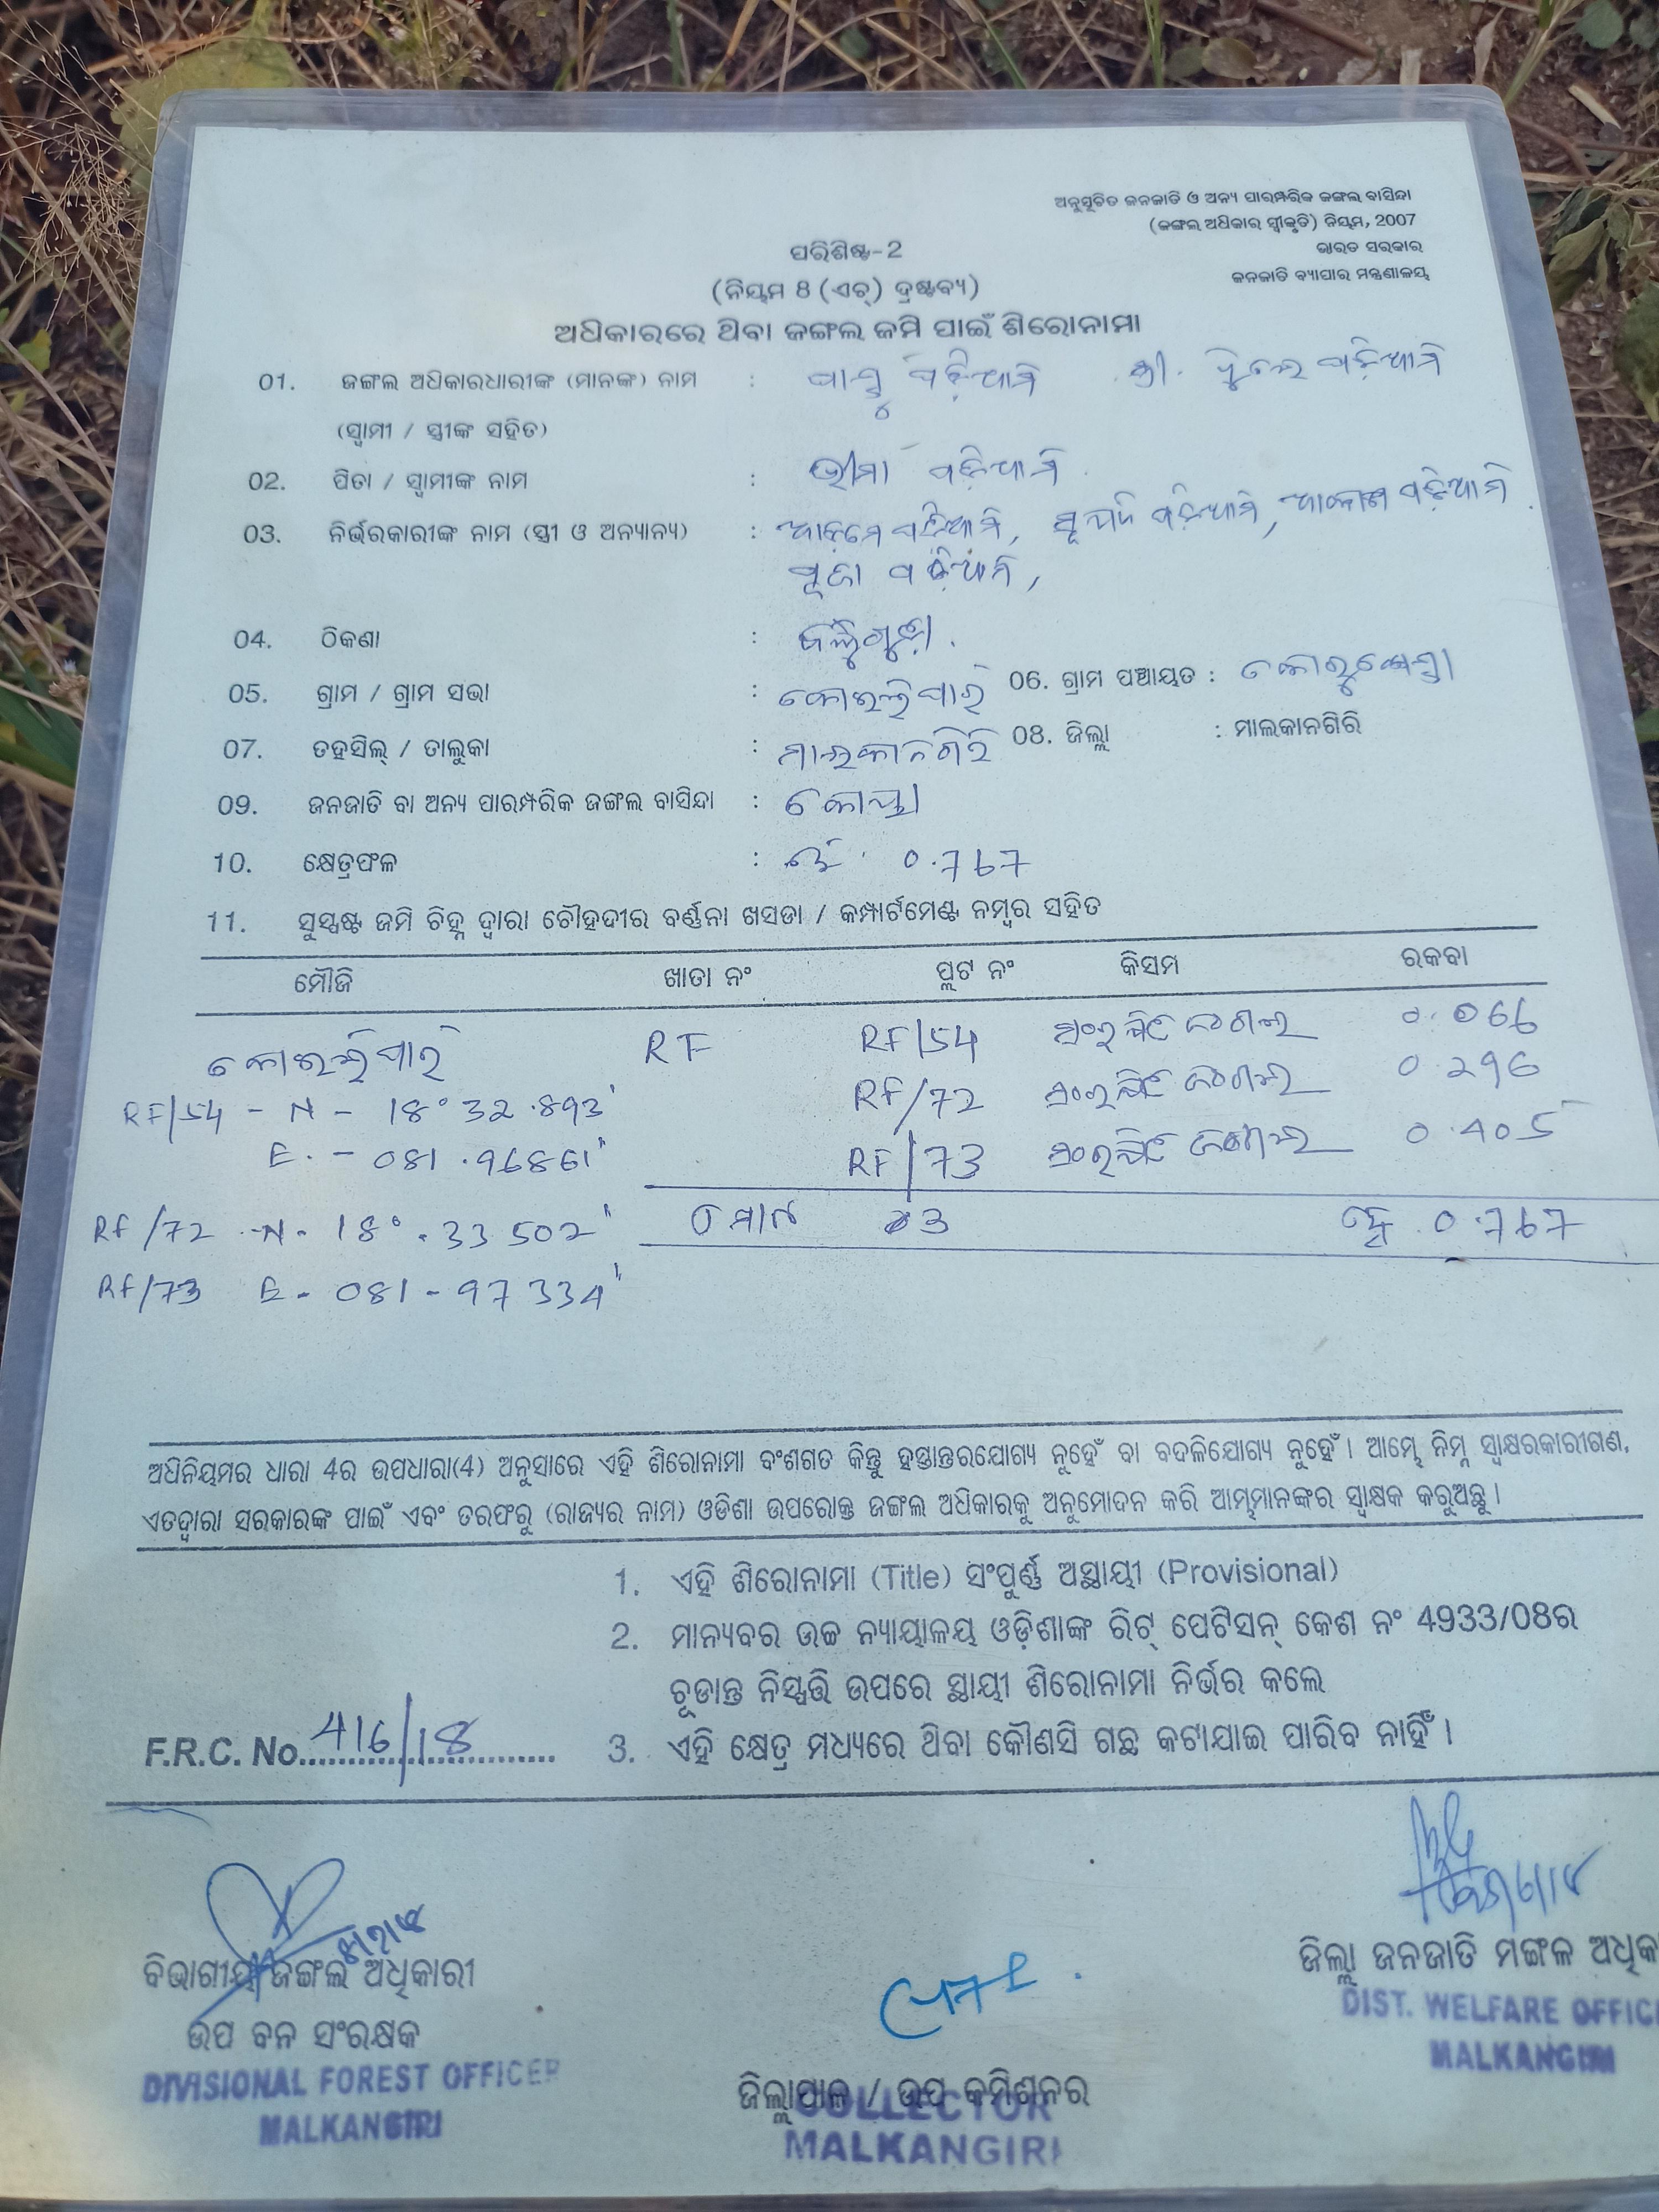 ଅନୁସୂଚିତ ଜନଜାତି ଓ ଅନ୍ୟ ପାରମ୍ପରିକ ଜଙ୍ଗଲ ବାସିନ୍ଦା
(ଜଙ୍ଗଲ ଅଧିକାର ସ୍ୱୀକୃତି) ନିୟମ, 2007
ଭାରତ ସରକାର
ଜନଜାତି ବ୍ୟାପାର ମନ୍ତ୍ରଣାଳୟ
ପରିଶିଷ୍ଟ-2
(ନିୟମ 8 (ଏଚ୍) ଦ୍ରଷ୍ଟବ୍ୟ)
ଅଧିକାରରେ ଥିବା ଜଙ୍ଗଲ ଜମି ପାଇଁ ଶିରୋନାମା
01. ଜଙ୍ଗଲ ଅଧିକାରଧାରୀଙ୍କ (ମାନଙ୍କ) ନାମ : ପଡ଼ିଆମି ସ୍ତ୍ରୀ. ପଡ଼ିଆମି
(ସ୍ୱାମୀ / ସ୍ତ୍ରୀଙ୍କ ସହିତ)
02. ପିତା / ସ୍ୱାମୀଙ୍କ ନାମ : ଭୀମା ପଡ଼ିଆମି
03. ନିର୍ଭରକାରୀଙ୍କ ନାମ (ସ୍ତ୍ରୀ ଓ ଅନ୍ୟାନ୍ୟ) : ପଡ଼ିଆମି, ପଡ଼ିଆମି, ଆକାଶ ପଡ଼ିଆମି
ପୂଜା ପଡ଼ିଆମି,
04. ଠିକଣା :
05. ଗ୍ରାମ / ଗ୍ରାମ ସଭା : କୋଇଲିପାରି 06. ଗ୍ରାମ ପଞ୍ଚାୟତ :
07. ତହସିଲ୍ / ତାଲୁକା : ମାଲକାନଗିରି 08. ଜିଲ୍ଲା : ମାଲକାନଗିରି
09. ଜନଜାତି ବା ଅନ୍ୟ ପାରମ୍ପରିକ ଜଙ୍ଗଲ ବାସିନ୍ଦା : କୋୟା
10. କ୍ଷେତ୍ରଫଳ : ହେ. 0.767
11. ସୁସ୍ପଷ୍ଟ ଜମି ଚିହ୍ନ ଦ୍ୱାରା ଚୌହଦୀର ବର୍ଣ୍ଣନା ଖସଡା / କମ୍ପାର୍ଟମେଣ୍ଟ ନମ୍ବର ସହିତ
ମୌଜି ଖାତା ନଂ ପ୍ଲଟ ନଂ କିସମ ରକବା
କୋଇଲିପାରି RF RF/54 ସଂରକ୍ଷିତ ଜଙ୍ଗଲ 0.066
RF/54 - N - 18° 32.893' RF/72 ସଂରକ୍ଷିତ ଜଙ୍ଗଲ 0.296
E. - 081.96861" RF/73 ସଂରକ୍ଷିତ ଜଙ୍ଗଲ 0.405
RF/72 - N - 18°.33 502' ମୋଟ 03 ହେ. 0.767
RF/73 E - 081-97334'
ଅଧିନିୟମର ଧାରା 4ର ଉପଧାରା(4) ଅନୁସାରେ ଏହି ଶିରୋନାମା ବଂଶଗତ କିନ୍ତୁ ହସ୍ତାନ୍ତରଯୋଗ୍ୟ ନୁହେଁ ବା ବଦଳିଯୋଗ୍ୟ ନୁହେଁ। ଆମ୍ଭେ ନିମ୍ନ ସ୍ୱାକ୍ଷରକାରୀଗଣ,
ଏତଦ୍ୱାରା ସରକାରଙ୍କ ପାଇଁ ଏବଂ ତରଫରୁ (ରାଜ୍ୟର ନାମ) ଓଡିଶା ଉପରୋକ୍ତ ଜଙ୍ଗଲ ଅଧିକାରକୁ ଅନୁମୋଦନ କରି ଆମ୍ଭମାନଙ୍କର ସ୍ୱାକ୍ଷକ କରୁଅଛୁ।
1. ଏହି ଶିରୋନାମା (Title) ସଂପୂର୍ଣ୍ଣ ଅସ୍ଥାୟୀ (Provisional)
2. ମାନ୍ୟବର ଉଚ୍ଚ ନ୍ୟାୟାଳୟ ଓଡ଼ିଶାଙ୍କ ରିଟ୍ ପେଟିସନ୍ କେଶ ନଂ 4933/08ର
ଚୂଡାନ୍ତ ନିସ୍ପତ୍ତି ଉପରେ ସ୍ଥାୟୀ ଶିରୋନାମା ନିର୍ଭର କଲେ
F.R.C. No. 416/18 3. ଏହି କ୍ଷେତ୍ର ମଧ୍ୟରେ ଥିବା କୌଣସି ଗଛ କଟାଯାଇ ପାରିବ ନାହିଁ।
ବିଭାଗୀୟ ଜଙ୍ଗଲ ଅଧିକାରୀ
ଉପ ବନ ସଂରକ୍ଷକ
DIVISIONAL FOREST OFFICER
MALKANGIRI
ଜିଲ୍ଲାପାଳ / ଉପ କମିଶନର
COLLECTOR
MALKANGIRI
ଜିଲ୍ଲା ଜନଜାତି ମଙ୍ଗଳ ଅଧିକା
DIST. WELFARE OFFIC
MALKANGIRI